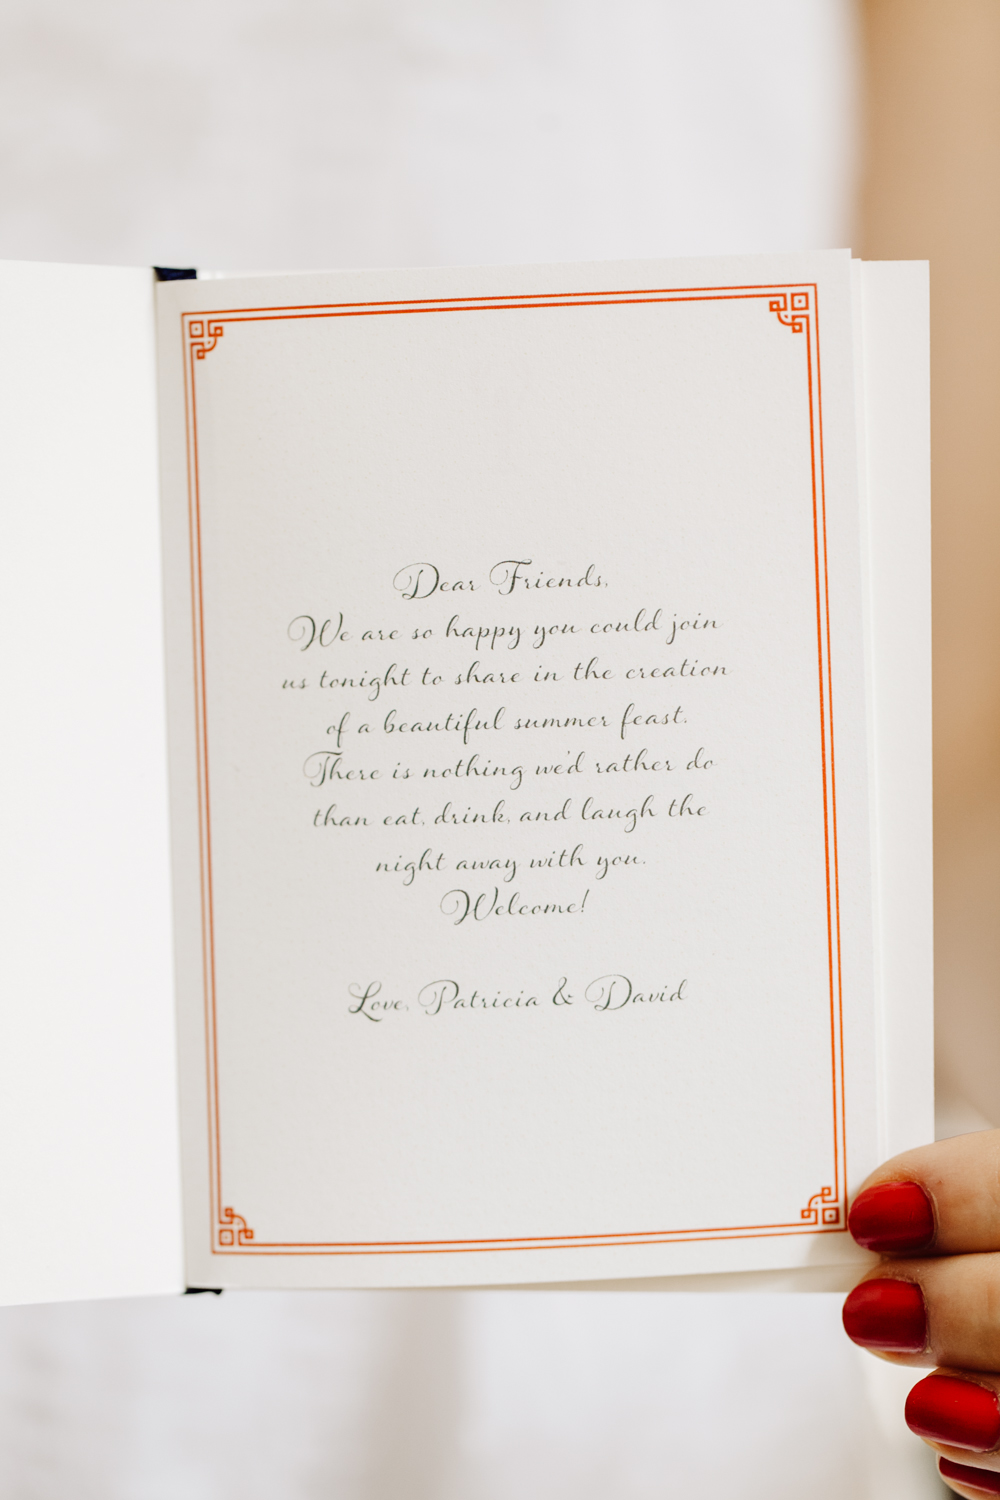 Dear Friends,
We are so happy you could join
us tonight to share in the creation
of a beautiful summer feast.
There is nothing we'd rather do
than eat, drink, and laugh the
night away with you.
Welcome!
Love, Patricia & David